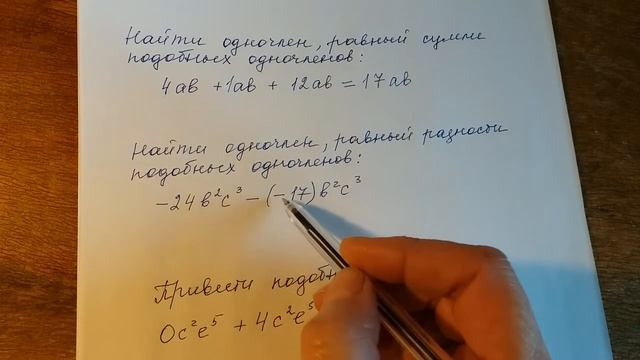 Найти одночлен, равный сумме
подобных одночленов:
4ав + 1ав + 12ав = 17ав
Найти одночлен, равный разности
подобных одночленов:
-24в²с³ - (-17)в²с³
Привести
0с²е⁵ + 4с²е⁵